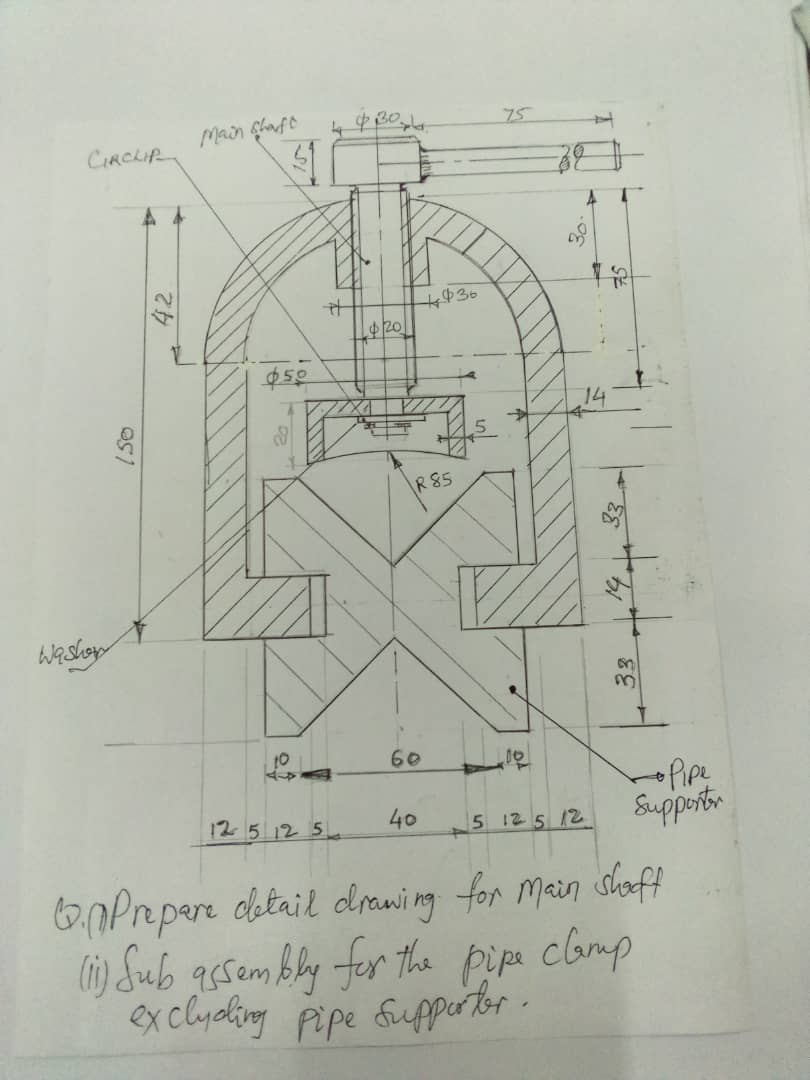 Main Shaft
φ30
75
CIRCLIP
15
30
42
75
φ36
φ20
φ50
14
20
5
150
R85
33
14
Washer
33
10
60
10
Pipe
Supporter
12 5 12 5 40 5 12 5 12
Q.(i) Prepare detail drawing for Main Shaft
(ii) Sub assembly for the pipe clamp
excluding pipe supporter.